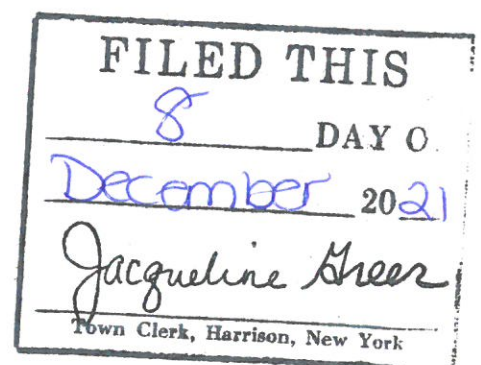 FILED THIS
8 DAY O
December 2021
Jacqueline Greer
Town Clerk, Harrison, New York